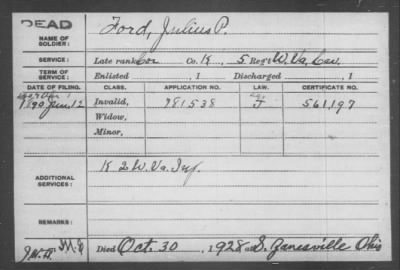 DEAD
NAME OF SOLDIER: Ford, Julius P.
SERVICE: Late rank Cor Co. K, 5 Reg't W. Va. Cav.
TERM OF SERVICE: Enlisted , 1 Discharged , 1
DATE OF FILING. CLASS. APPLICATION NO. LAW. CERTIFICATE NO.
1890 Jun. 12 Invalid, 781538 J 561,197
Widow,
Minor,
ADDITIONAL SERVICES: K 2 W. Va. Inf.
REMARKS:
Died Oct. 30, 1928 at S. Zanesville Ohio